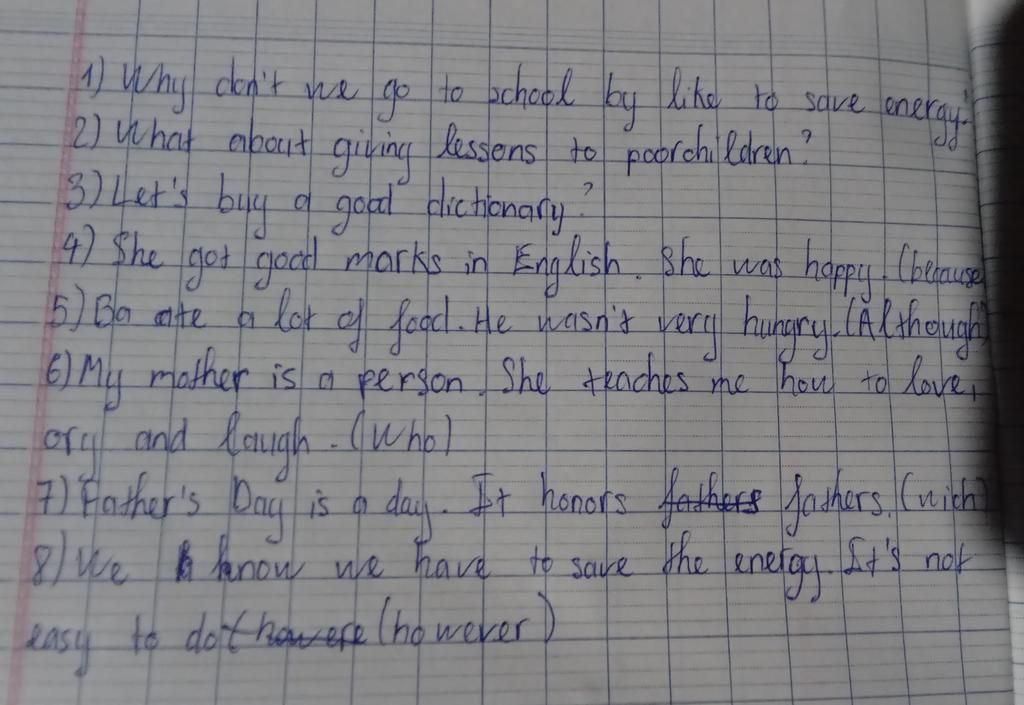 1) Why don't we go to school by like to save energy?
2) What about giving lessons to poorchildren?
3) Let's buy a good dictionary?
4) She got good marks in English. She was happy. (because
5) Ba ate a lot of food. He wasn't very hungry. (Although)
6) My mother is a person. She teaches me how to love,
cry and laugh. (who)
7) Father's Day is a day. It honors fathers fathers. (wich)
8) We know we have to save the energy. It's not
easy to do (however)